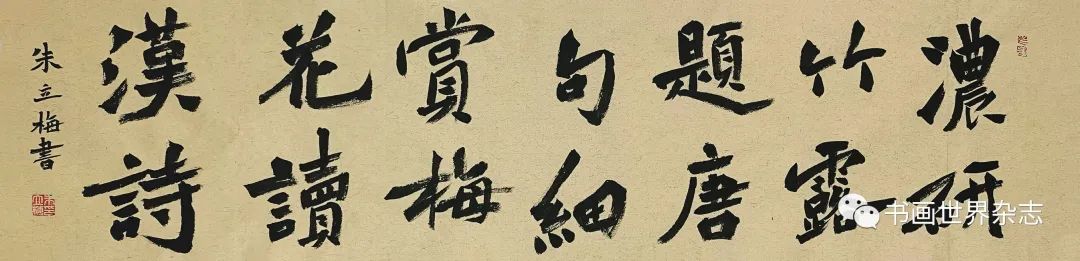 濃研
竹露
題唐
句細
賞梅
花讀
漢詩
朱立梅書
书画世界杂志